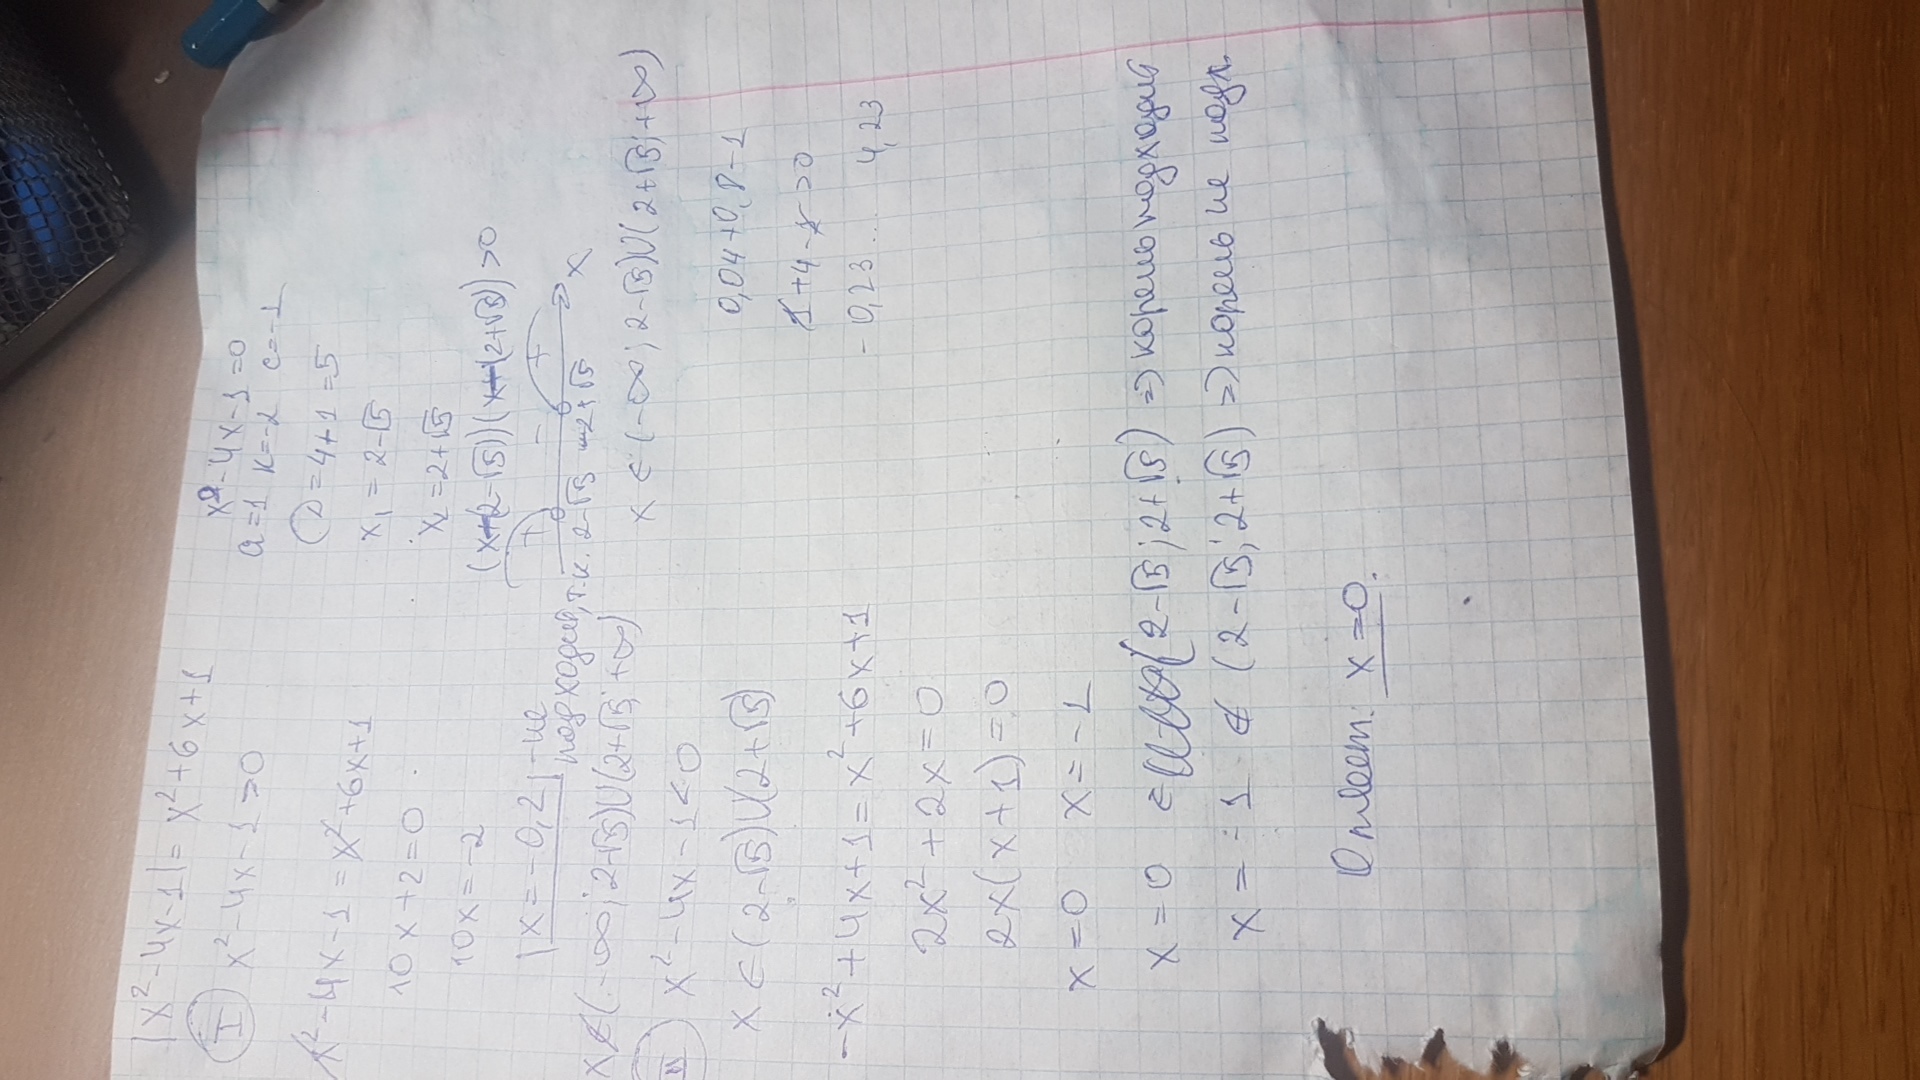 |x²-4x-1|=x²+6x+1
I x²-4x-1>0
x²-4x-1=x²+6x+1
10x+2=0
10x=-2
x=-0,2 - не подходит, т.к.
x∉(-∞;2-√5)U(2+√5;+∞)
x²-4x-1=0
a=1 k=-2 c=-1
D=4+1=5
x₁=2-√5
x₂=2+√5
(x-(2-√5))(x-(2+√5))>0
+ - +
2-√5 2+√5 x
x∈(-∞;2-√5)U(2+√5;+∞)
II x²-4x-1<0
x∈(2-√5)U(2+√5)
-x²+4x+1=x²+6x+1
2x²+2x=0
2x(x+1)=0
x=0 x=-1
0,04+0,8-1
1+4-1>0
-0,23... 4,23
x=0 ∈ (2-√5;2+√5) ⇒ корень подходит
x=-1 ∉ (2-√5;2+√5) ⇒ корень не подх.
Ответ: x=0.